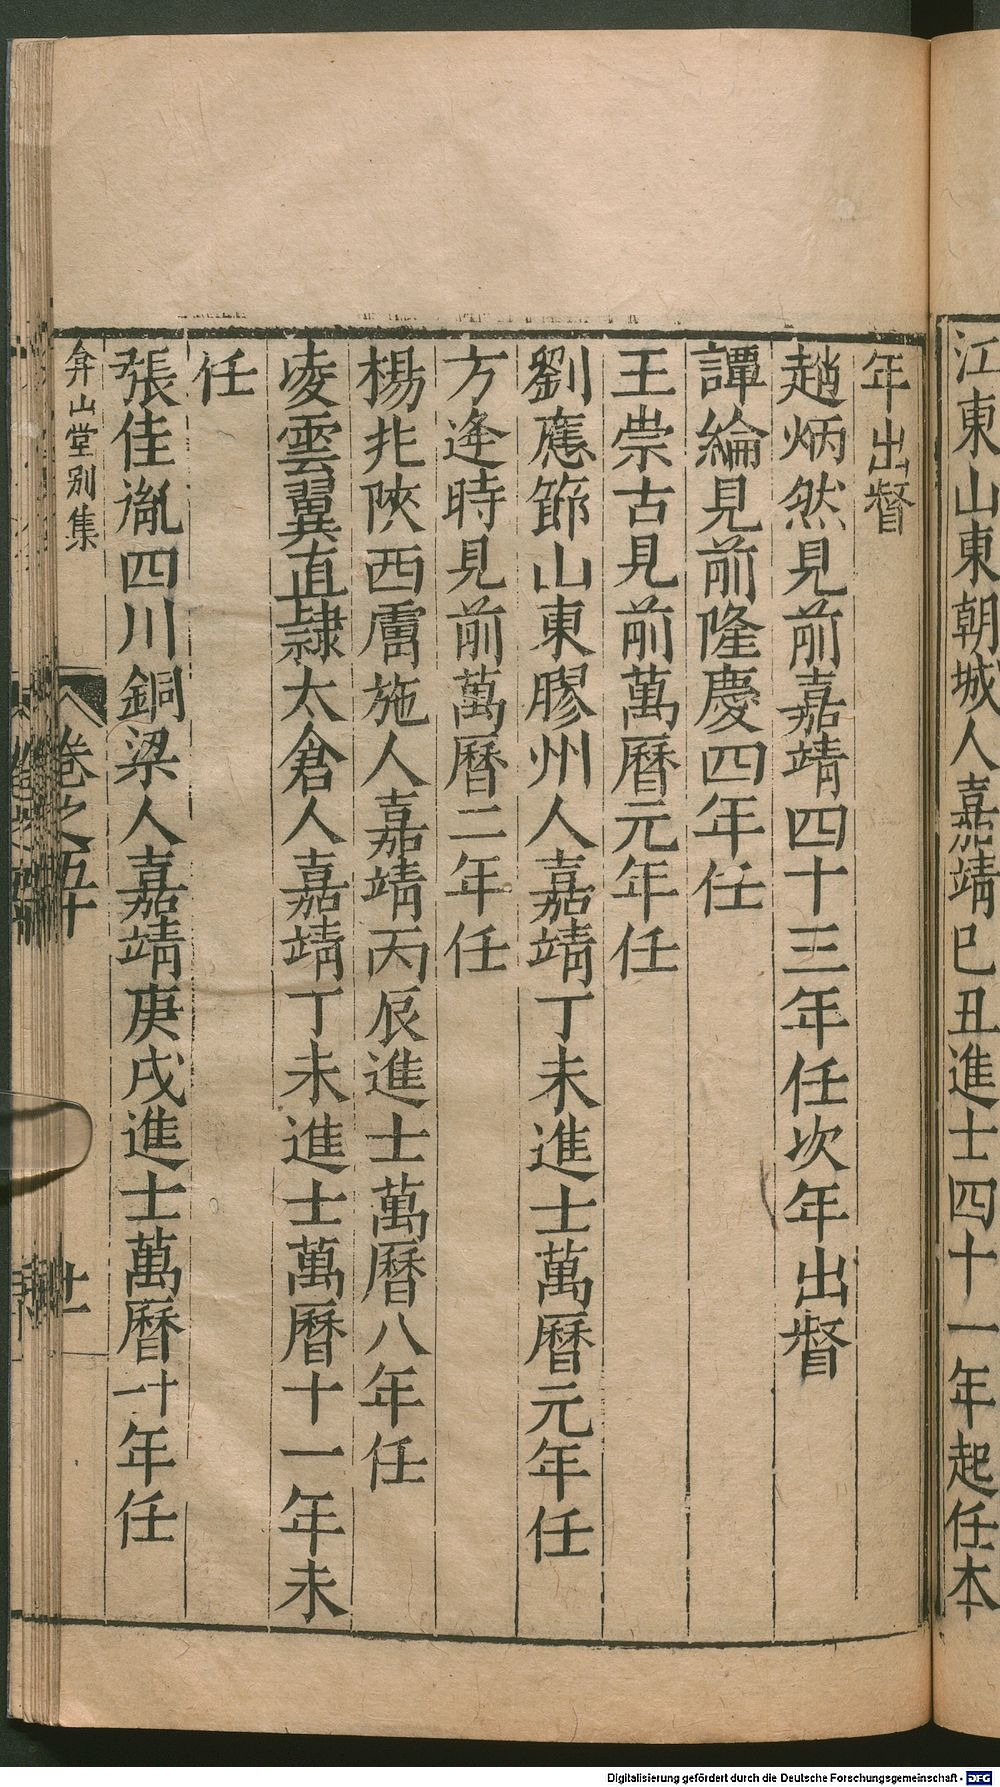 江東山東朝城人嘉靖已丑進士四十一年起任本
年出督
趙炳然見前嘉靖四十三年任次年出督
譚綸見前隆慶四年任
王崇古見前萬曆元年任
劉應節山東膠州人嘉靖丁未進士萬曆元年任
方逢時見前萬曆二年任
楊兆陝西膚施人嘉靖丙辰進士萬曆八年任
凌雲翼直隸太倉人嘉靖丁未進士萬曆十一年未
任
張佳胤四川銅梁人嘉靖庚戌進士萬曆十一年任
弇山堂別集
卷之五十
廿
Digitalisierung gefördert durch die Deutsche Forschungsgemeinschaft - DFG